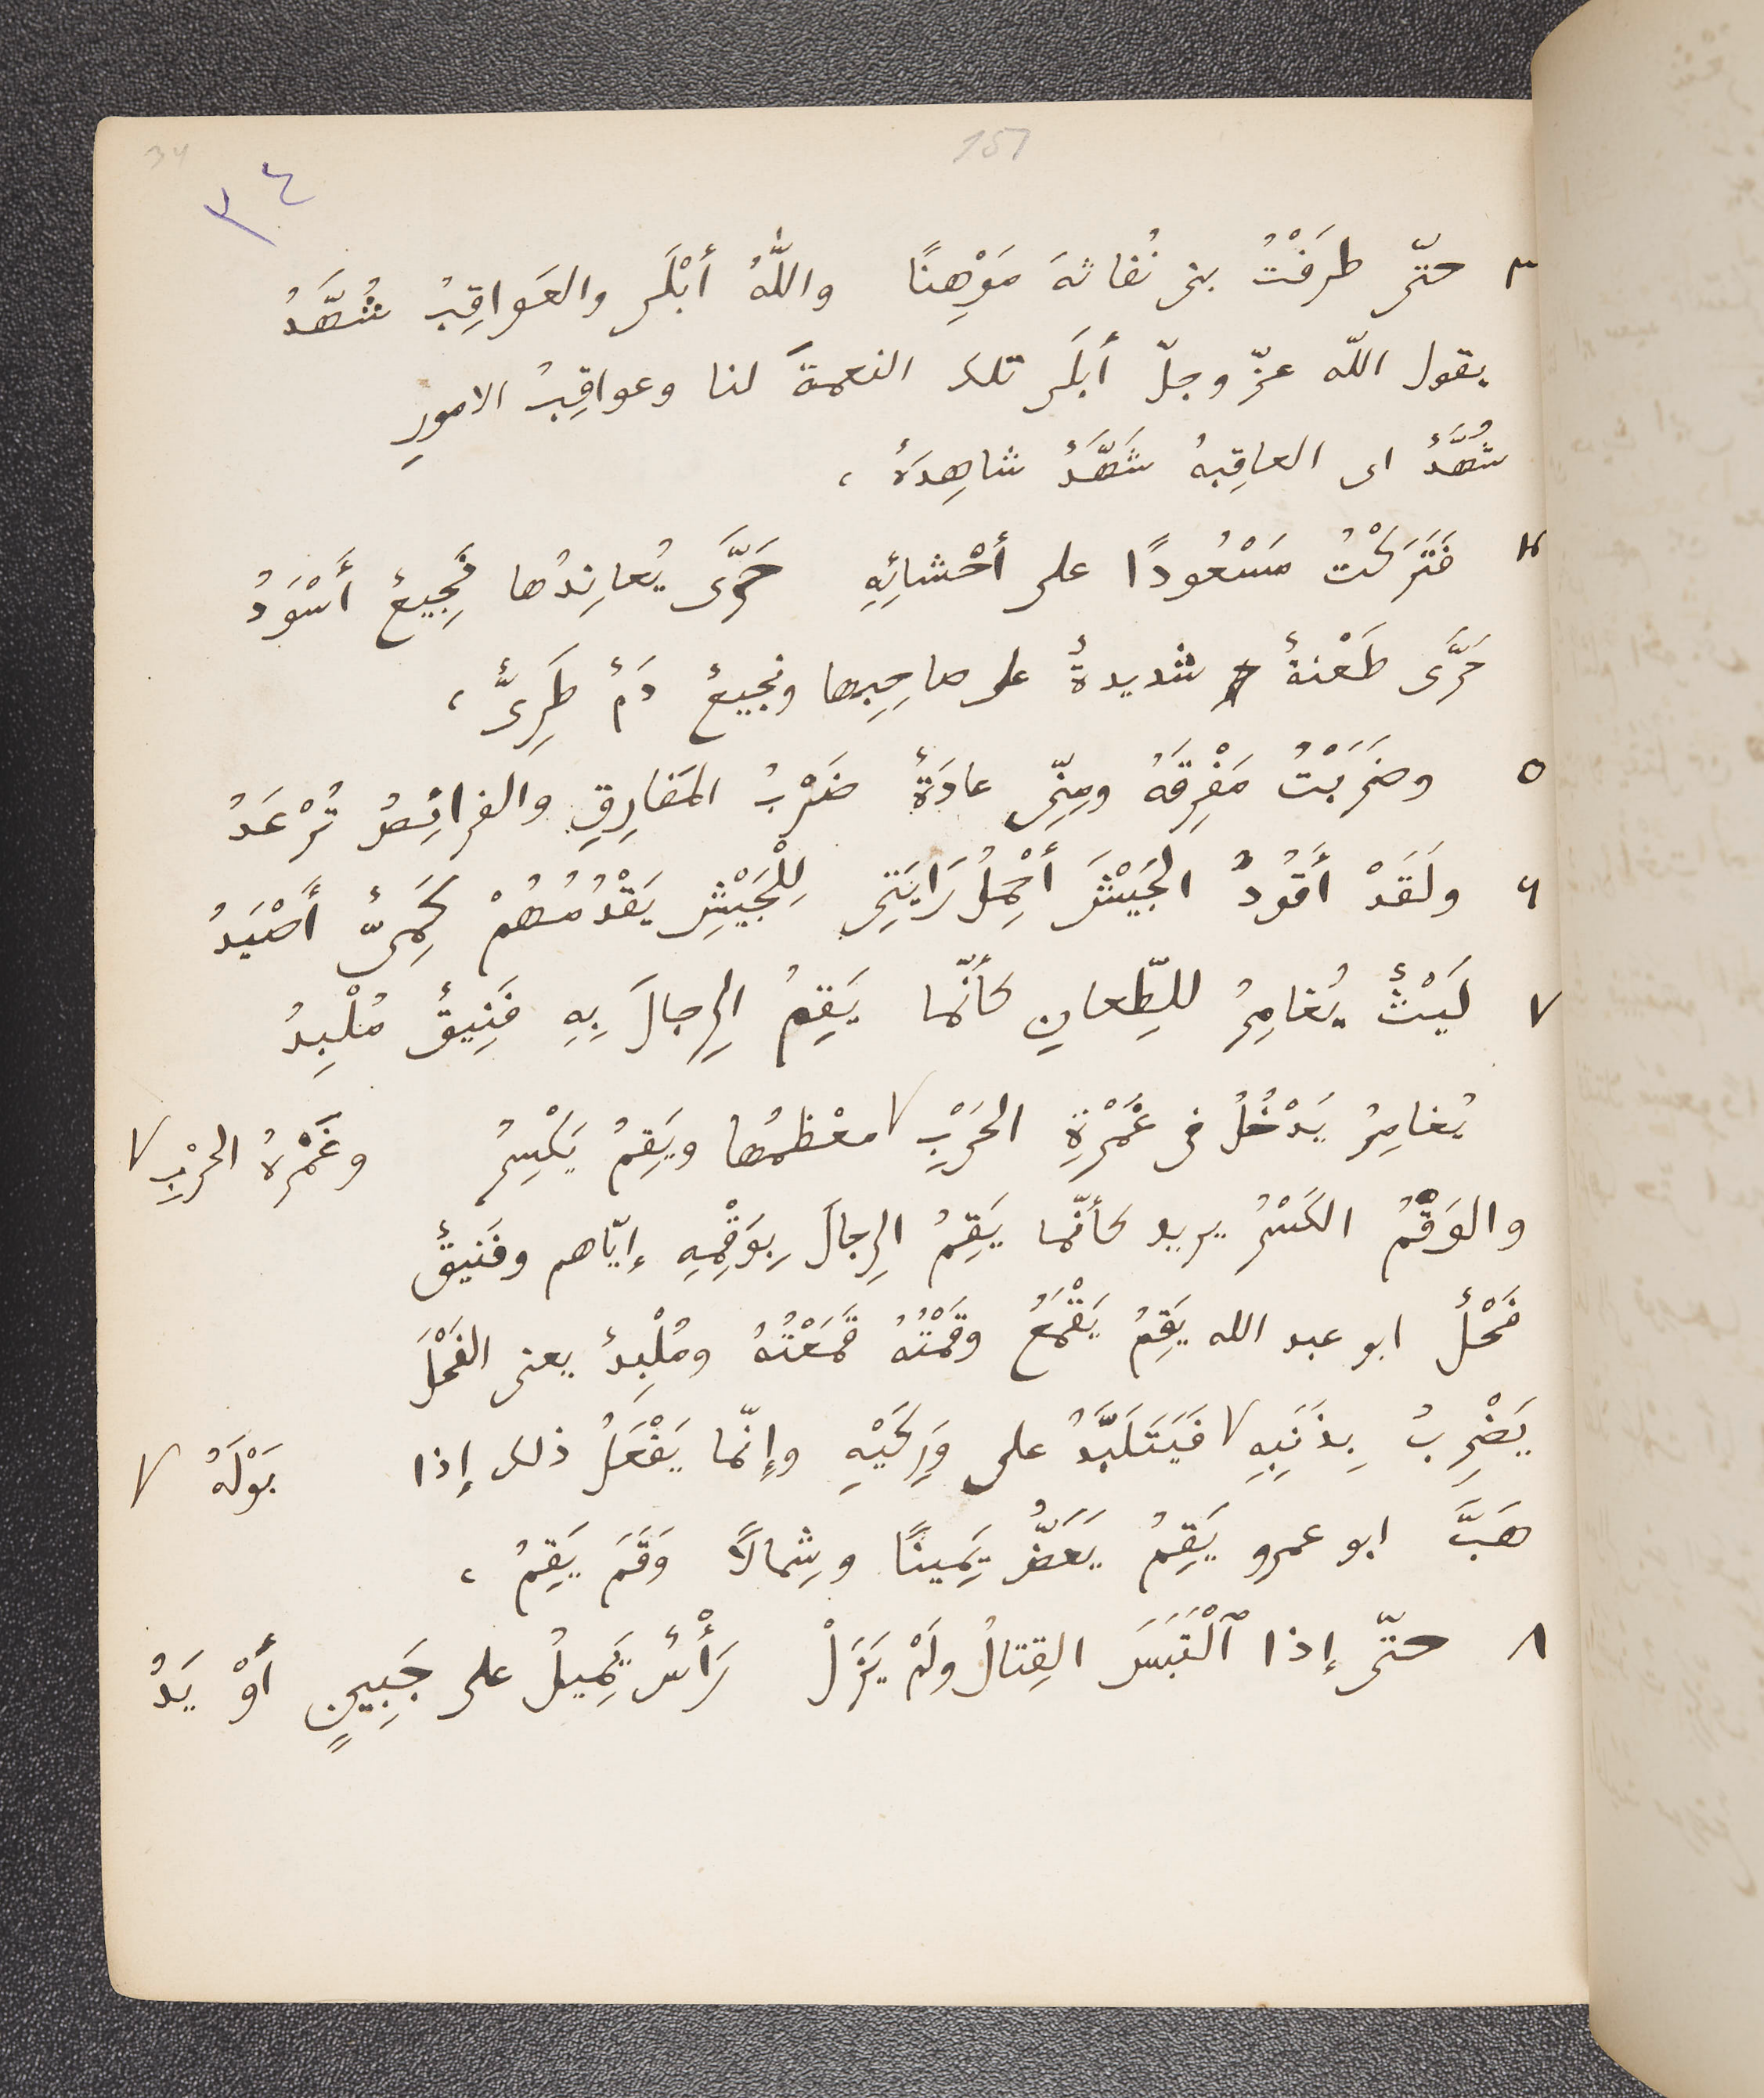 34
157
٣٤
٣ حتّى طرَقْتُ بنى نُفاثةَ مَوْهِنًا واللّٰهُ أَبْلَى والعَواقِبُ شُهَّدُ
يقول اللّه عزّ وجلّ أَبلَى تلك النعمةَ لنا وعواقِبُ الامورِ
شُهَّدٌ اى العاقِبةُ شَهَّدٌ شاهِدَةٌ ،
٤ فَتَرَكْتُ مَسْعُودًا على أَحْشائِهِ حَرَّى يُعانِدُها نَجِيعٌ أَسْوَدُ
حَرَّى طَعْنةٌ شديدةٌ على صاحِبِها ونجيعٌ دَمٌ طَرِىٌّ ،
٥ وضَرَبْتُ مَفْرِقَهُ ومِنّى عادَةٌ ضَرْبُ المَفارِقِ والفرائِصُ تُرْعَدُ
٦ ولَقَدْ أَقُودُ الجَيْشَ أَحْمِلُ رَايَتِى لِلْجَيْشِ يَقْدُمُهُمْ كَمِىٌّ أَصْيَدُ
٧ لَيْثٌ يُغامِرُ للطِّعانِ كأَنّما يَقِمُ الرِجالَ بِهِ فَنِيقٌ مُلْبِدُ
يُغامِرُ يَدْخُلُ فى غَمْرَةِ الحَرْبِ ٧ معْظمُها ويَقِمُ يَكْسِرُ وغَمْرةُ الحرْبِ ٧
والوَقْمُ الكَسْرُ يريد كأنّما يَقِمُ الرِجالَ بِوَقْمِهِ إيّاهم وفَنيقٌ
فَحْلٌ ابو عبد الله يَقِمُ يَقْمَعُ وقَمْتُهُ قَمَعْتُهُ ومُلْبِدٌ يعنى الفَحْلَ
يَضْرِبُ بِذَنَبِهِ ٧ فَيَتَلَبَّدُ على وَرِكَيْهِ وإنّما يَفْعَلُ ذلك إذا بَوْلَهُ ٧
هَبَّ ابو عمرو يَقِمُ يَعَضُّ يَمِينًا وشِمالاً وَقَمَ يَقِمُ ،
٨ حتّى إذا ٱلْتَبَسَ القِتالُ ولَمْ يَزَلْ رَأْسٌ يَمِيلُ على جَبِينٍ أَوْ يَدُ